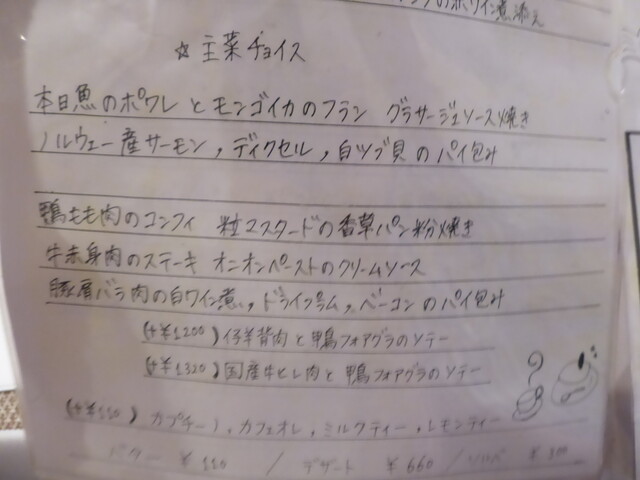 のポワイン煮添え
☆主菜チョイス
本日魚のポワレとモンゴイカのフラン グラサージュソース焼き
ノルウェー産サーモン,ディクセル,白ツブ貝のパイ包み
鴨もも肉のコンフィ 粒マスタードの香草パン粉焼き
牛赤身肉のステーキ オニオンペーストのクリームソース
豚肩バラ肉の白ワイン煮,ドライプラム,ベーコンのパイ包み
(+¥1200)仔羊背肉と鴨フォアグラのソテー
(+¥1320)国産牛ヒレ肉と鴨フォアグラのソテー
(+¥110)カプチーノ,カフェオレ,ミルクティー,レモンティー
バター ¥110 / デザート ¥660 /